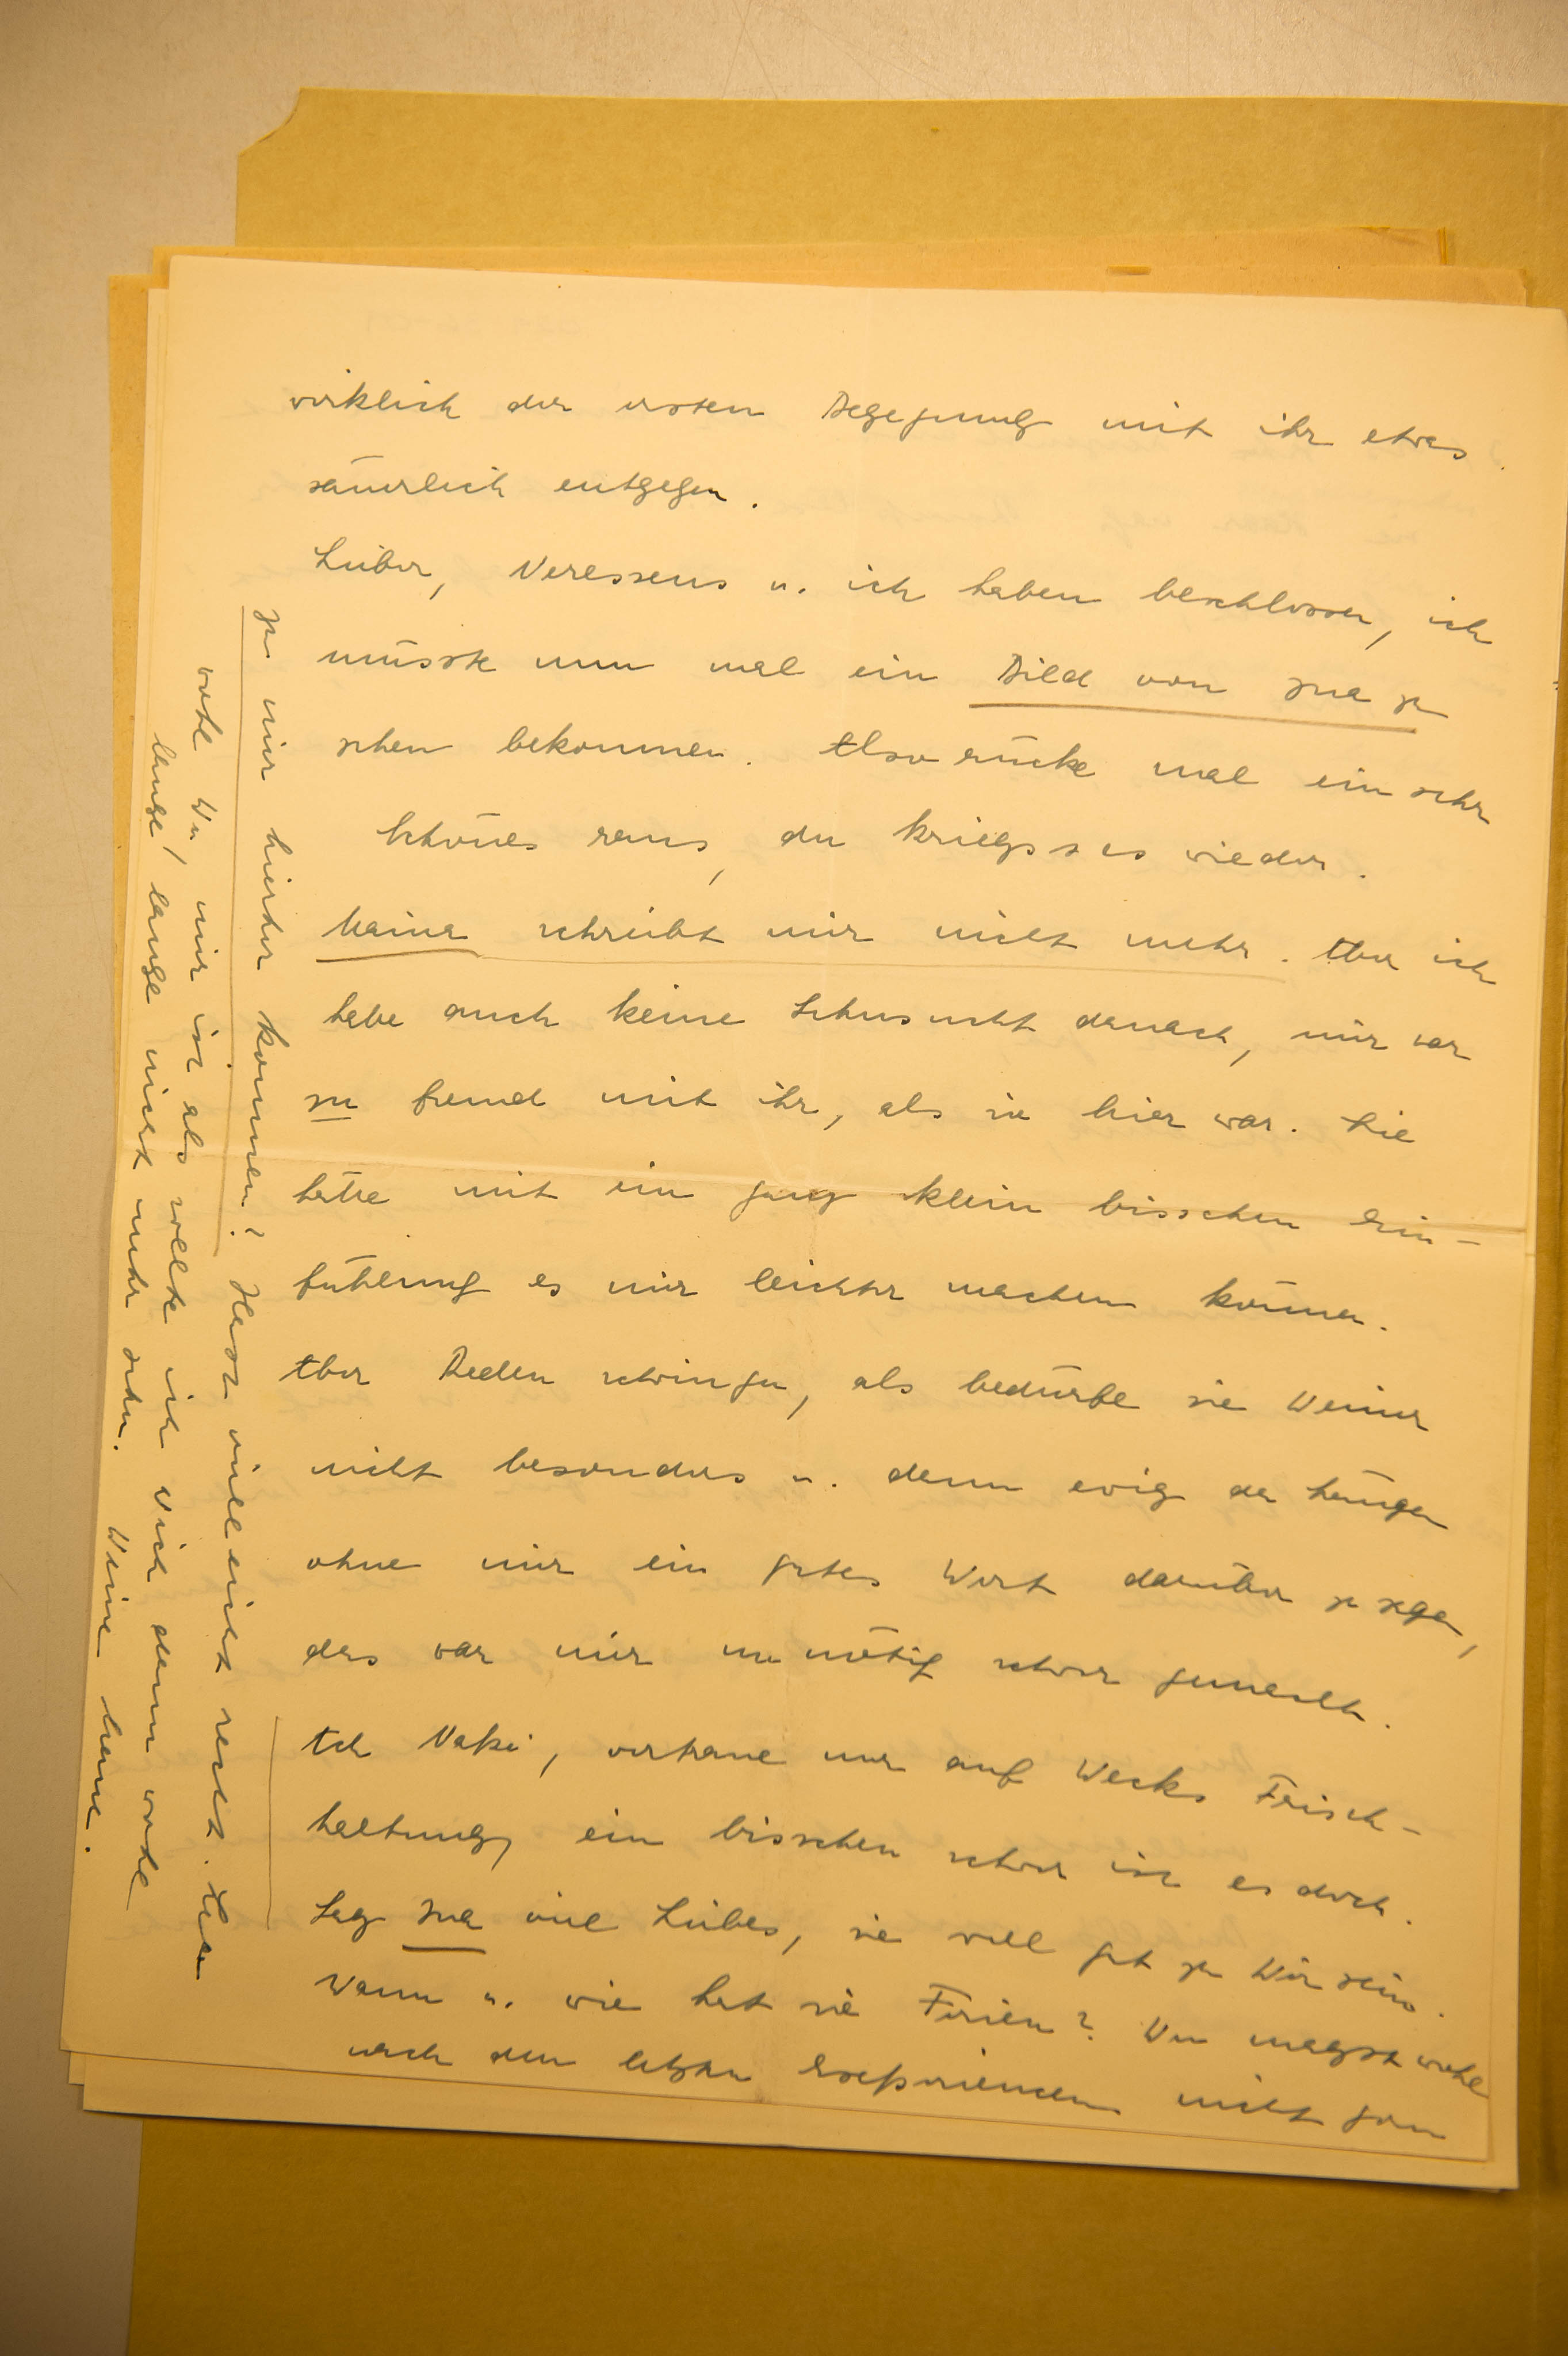 wirklich der ersten Begegnung mit ihr etwas
säuerlich entgegen.
Lieber, Veressens u. ich haben beschlossen, ich
müsste nun mal ein Bild von Ina zu
sehen bekommen. Also rücke mal ein sehr
Schönes raus, du kriegst es wieder.
schreibt mir nicht mehr. Aber ich
habe auch keine Sehnsucht danach, mir war
zu fremd mit ihr, als sie hier war. Sie
hätte mit ein ganz klein bisschen Ein-
fühlung es mir leichter machen können.
Aber Reden schwingen, als bedürfe sie Deiner
nicht besonders u. dann ewig da hängen
ohne mir ein gutes Wort darüber zu sagen,
das war mir unnötig schwer gemacht.
Ach, vertraue nur auf Wecks Frisch-
haltung, ein bisschen schwer ist es doch.
Sag Ina viel Liebes, sie soll gut zu Dir sein.
Wann u. wie hat sie Ferien? Du magst wohl
nach den letzten Experiencen nicht gern
zu mir hierher kommen? Hast vielleicht recht. Leb
wohl Du, mir ist als sollte ich Dich dann wohl
lange, lange nicht mehr sehn. Deine